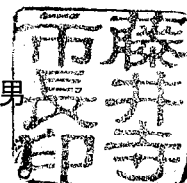 藤井寺
市長印
男